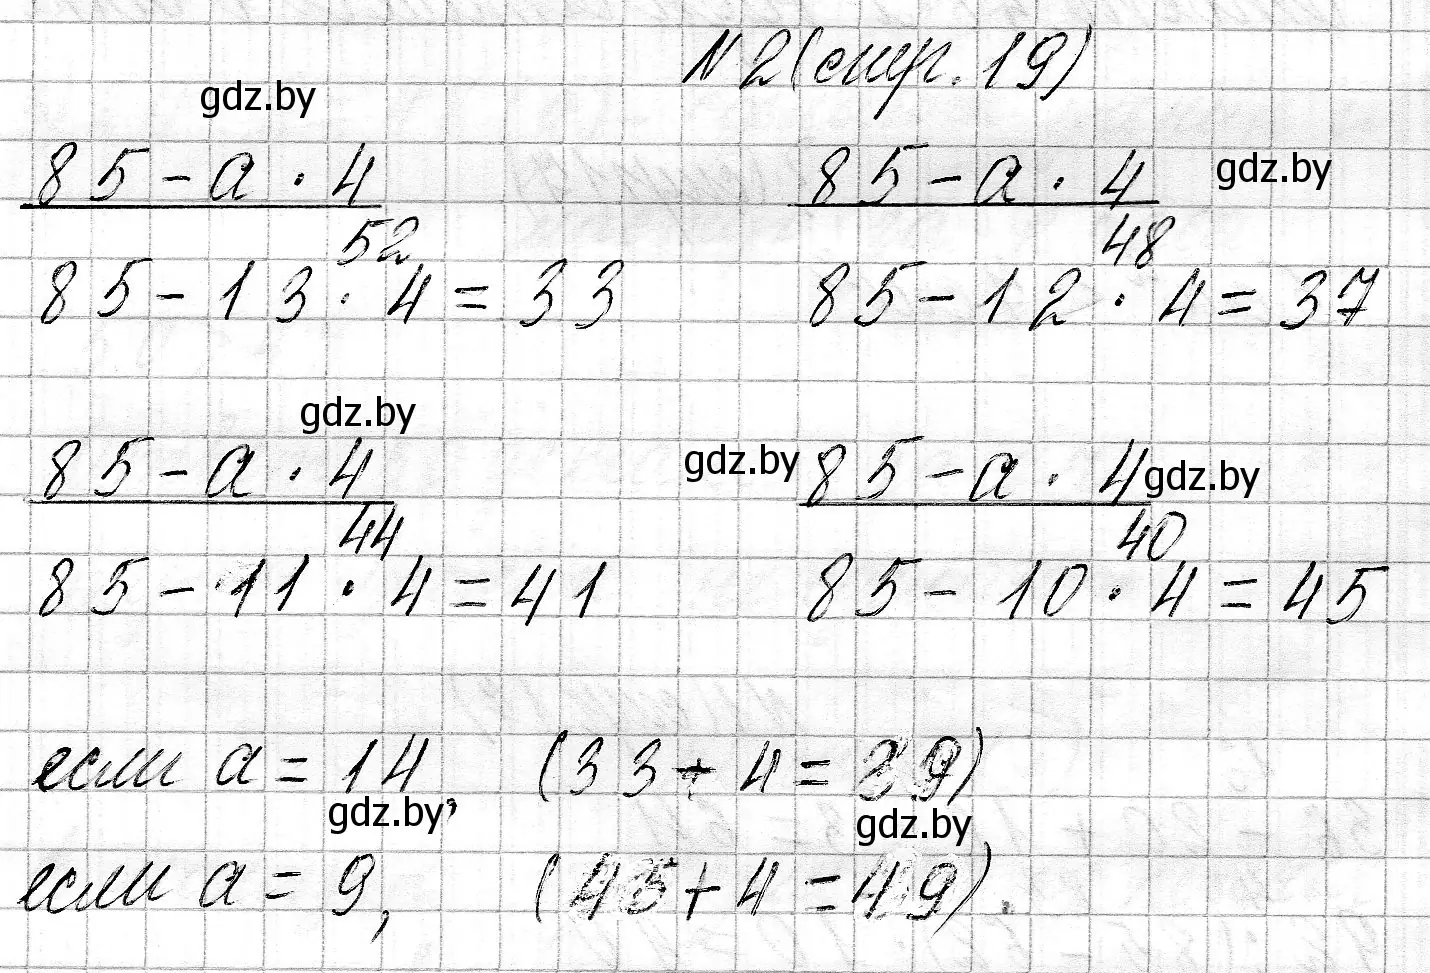 №2 (стр. 19)
gdz.by
85 - а · 4
85 - а · 4 gdz.by
52
48
85 - 13 · 4 = 33
85 - 12 · 4 = 37
gdz.by
85 - а · 4
gdz.by 85 - а · 4 gdz.by
44
40
85 - 11 · 4 = 41
85 - 10 · 4 = 45
если а = 14, (33 - 4 = 29)
gdz.by
gdz.by
если а = 9, (45 + 4 = 49).